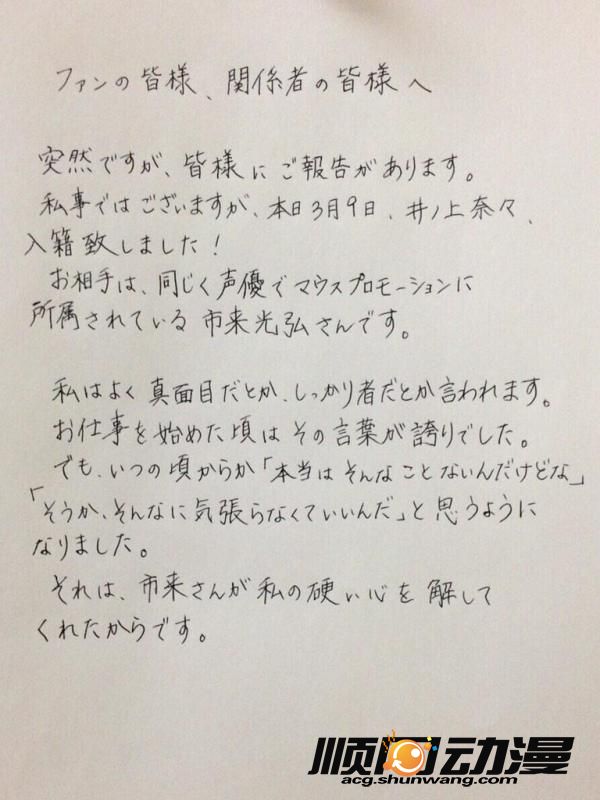 ファンの皆様、関係者の皆様へ
突然ですが、皆様にご報告があります。
私事ではございますが、本日3月9日、井ノ上奈々、
入籍致しました！
お相手は、同じく声優でマウスプロモーションに
所属されている市来光弘さんです。
私はよく真面目だとか、しっかり者だとか言われます。
お仕事を始めた頃はその言葉が誇りでした。
でも、いつの頃からか「本当はそんなことないんだけどな」
「そうか、そんなに気張らなくていいんだ」と思うように
なりました。
それは、市来さんが私の硬い心を解して
くれたからです。
顺网动漫
acg.shunwang.com